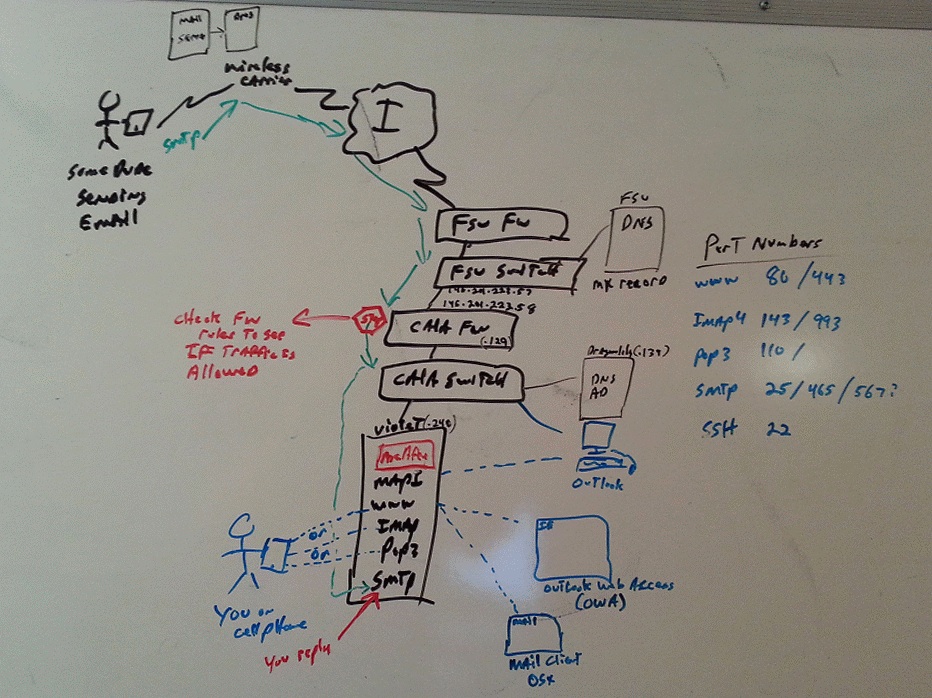 MAIL
SERVER
DNS
wireless
CARRIER
I
SMTP
Some Dude
Sending
Email
FSU FW
FSU Switch
FSU
DNS
MX record
146.201.222.57
146.201.222.58
CHIA FW
(.129)
Check FW
rules To see
IF TRAFFIC IS
Allowed
CHIA Switch
Dragonfly (.134)
DNS
AD
VioleT (.240)
MAPI
www
IMAP
POP3
SMTP
OuTlook
or
or
You on
cellphone
You reply
IE
OuTlook Web Access
(OWA)
MAIL
MAIL Client
OSX
PorT Numbers
www 80 / 443
IMAP4 143 / 993
POP3 110 /
SMTP 25 / 465 / 567?
SSH 22